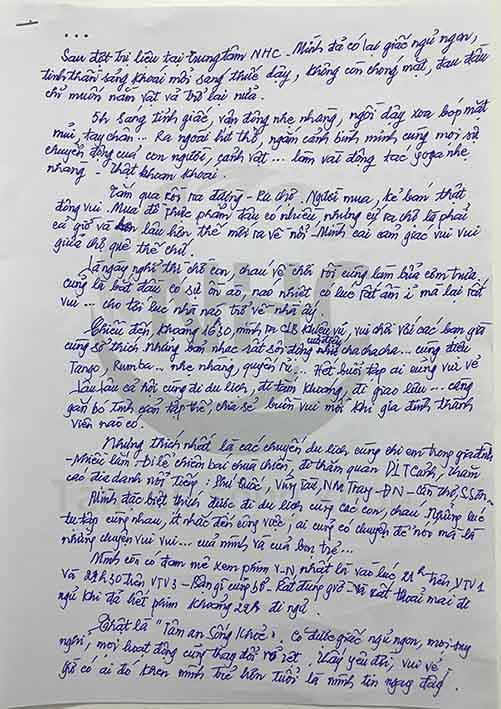 ...
Sau đợt trị liệu tại trung tâm NHC. Mình đã có lại giấc ngủ ngon,
tinh thần sảng khoái mỗi sáng thức dậy, không còn chóng mặt, đau đầu
chỉ muốn nằm vật ra trở lại nữa.
5h sáng tỉnh giấc, vận động nhẹ nhàng, ngồi dậy xoa bóp mặt
mũi, tay chân... Ra ngoài hít thở, ngắm cảnh bình minh cùng mọi sự
chuyển động của con người, cảnh vật... làm vài động tác yoga nhẹ
nhàng - thật khoan khoái.
Tắm qua rồi ra đường - Ra chợ. Người mua, kẻ bán thật
đông vui. Mua đồ thực phẩm đâu có nhiều nhưng cứ ra chợ là phải
cả giờ và lâu hơn thế mới ra về nổi - Mình cái cảm giác vui vui
giữa chợ quê thế chứ.
Là ngày nghỉ thì chờ con, cháu về chơi rồi cùng làm bữa cơm trưa
cũng là bắt đầu có sự ồn ào, náo nhiệt có lúc rất ầm ĩ mà lại rất
vui... cho tới lúc nhà nào trở về nhà ấy.
Chiều đến, khoảng 16h30, mình đi CLB khiêu vũ, vui chơi với các bạn già
cùng sở thích. Những bản nhạc rất sôi động của điệu chachacha... cùng điệu
Tango, Rumba... nhẹ nhàng, quyến rũ... Hết buổi tập ai cũng vui vẻ
Lâu lâu cả hội cùng đi du lịch, đi tắm khoáng, đi giao lưu... càng
gắn bó tình cảm tập thể, chia sẻ buồn vui mỗi khi gia đình thành
viên nào có.
Nhưng thích nhất là các chuyến du lịch cùng chị em trong gia đình
- Nhiều lần - Đi lễ chiêm bái chùa chiền, đi thăm quan DLTCảnh, thăm
các địa danh nổi tiếng: Phú Quốc, Vũng Tàu, Nha Trang - ĐN - Cần thơ, S.Sơn.
Mình đặc biệt thích được đi du lịch cùng các con, cháu. Những lúc
tụ tập cùng nhau, ít nhắc đến công việc, ai cũng có chuyện để nói mà là
những chuyện vui vui... của mình và của bọn trẻ...
Mình còn có đam mê xem phim V-N, nhất là vào lúc 21h trên VTV1
và 21h30 trên VTV3 - Bận gì cũng bỏ - Rất đúng giờ - Và rất thoải mái đi
ngủ khi đã hết phim khoảng 22h đi ngủ.
Thật là "Tâm an Sống khỏe". Có được giấc ngủ ngon, mọi suy
nghĩ, mọi hoạt động cũng thay đổi rõ rệt. Thấy yêu đời, vui vẻ
giờ có ai đó khen mình trẻ hơn tuổi là mình tin ngay đấy!